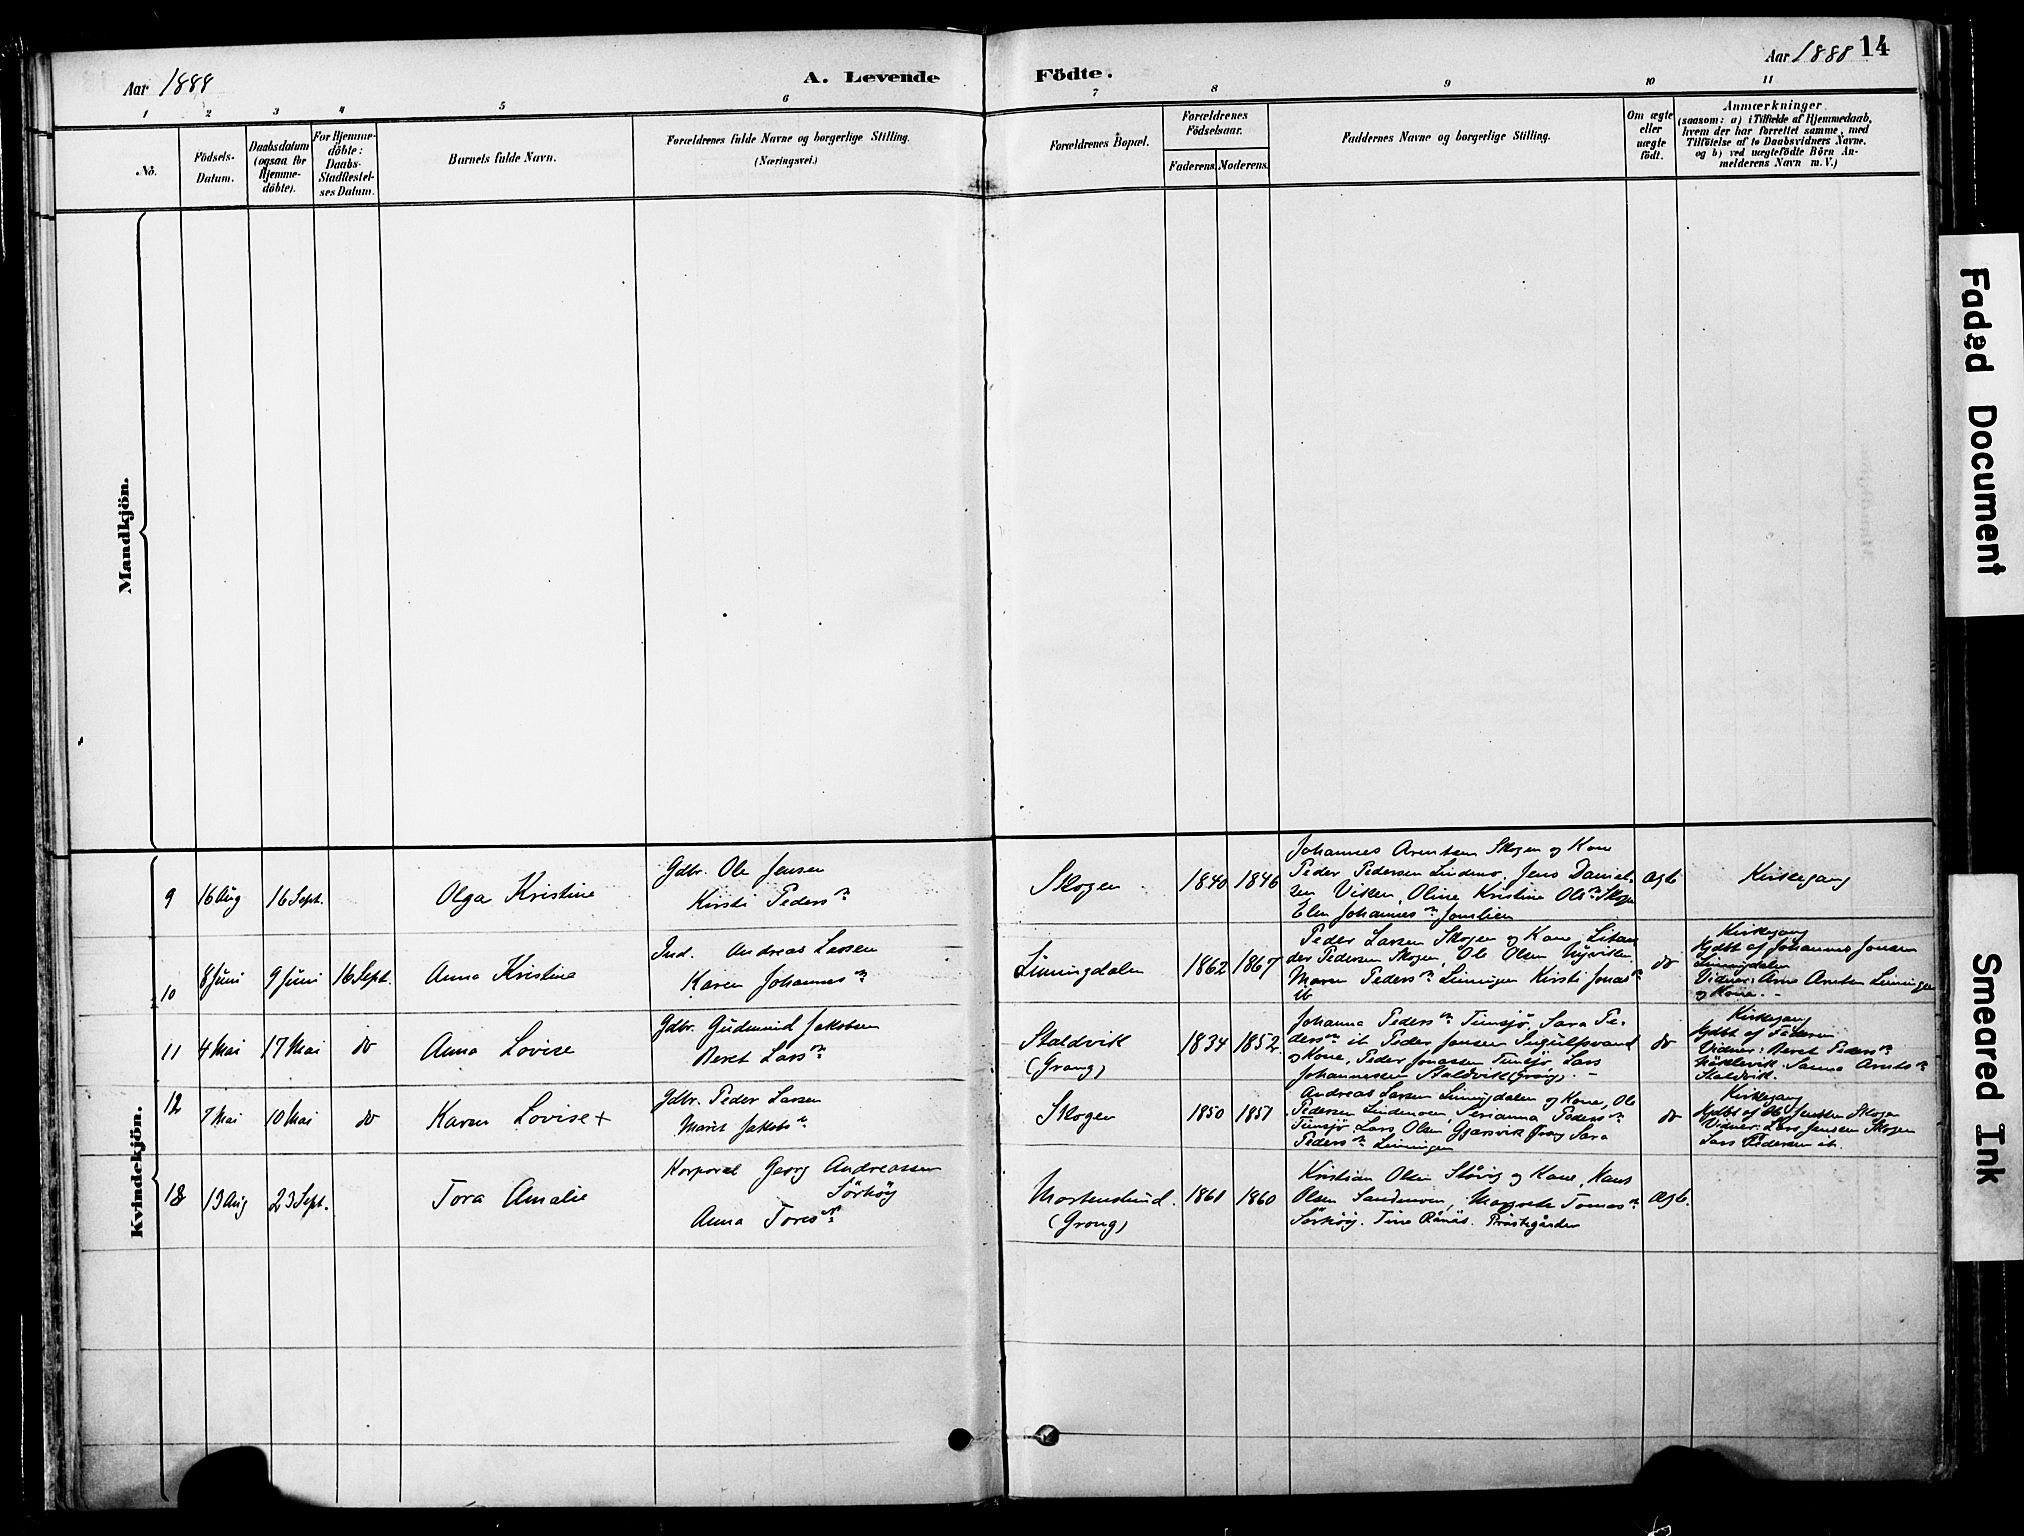 Aar 1888
A. Levende
Födte.
Aar 1888 14
1 2 3 4 5 6 7 8 9 10 11
No.
Födsels-
Datum.
Daabsdatum
(ogsaa for
Hjemme-
döbte).
For Hjemme-
döbte:
Daabs-
Stadfæstel-
ses Datum.
Barnets fulde Navn.
Forældrenes fulde Navne og borgerlige Stilling.
(Næringsvei.)
Forældrenes Bopæl.
Forældrenes
Födselsaar.
Faderens. Moderens.
Faddernes Navne og borgerlige Stilling.
Om ægte
eller
uægte
født.
Anmærkninger
(saasom: a) i Tilfælde af Hjemmedaab,
hvem der har forrettet samme, med
Tilföielse af to Daabsvidners Navne,
og b) ved uægtefödte Börn An-
melderens Navn m. V.)
Mandkjön.
Kvindekjön.
9 16 Aug 16 Sept. Olga Kristine
Gdbr. Ole Jensen
Kirsti Pedersn
Skogen 1840 1846
Johannes Arentsen Skogen og Kone
Peder Pedersen Lindmo, Jens Daniel-
sen Viken, Oline Kristine Olsn Skogen
Elen Johannesn
Ægte
Kirkegang
10 8 Juni 9 Juni 16 Sept. Anna Kristine
Ind. Andreas Larsen
Karen Johannesn
Linningdalen 1862 1867
Peder Larsen Skogen og Kone,
der Pedersen Skogen, Ole Olsen Nyviken
Maren Pedersn Linningen Kirsti Jonasn
ib
do
Kirkegang
Hjdbt af Johannes Jonsen
Linningdalen
Vidner: Arne Arntsen Linningen
og Kone. -
11 4 Mai 17 Mai do Anna Lovise
Gdbr. Gudmund Jakobsen
Beret Larsn
Staldvik
(Grong)
1834 1852
Johanna Pedersn Tunsjø, Sara Pe-
dersn ib Peder Jensen Ingulfsvand
og Kone, Peder Jonassen Tunsjø Lars
Johannessen Staldvik (Grong). -
do
Kirkegang
Hjdbt af Faderen
Vidner: Beret Pedersn
Sanna Arntsn
Staldvik.
12 7 Mai 10 Mai do Karen Lovise +
Gdbr. Peder Larsen
Maret Jakobsn
Skogen 1850 1851
Andreas Larsen Linningdalen og Kone, Ole
Pedersen Lindmoen, Serianna Pedersn
Tunsjø Lars Olsen Gjersvik Grong Sara
Pedersn Linningen
do
Kirkegang
Hjdbt af Ole Jensen Skogen
Vidner: Lars Jensen Skogen
Lars Pedersen ib.
13 13 Aug 23 Sept. Tora Amalie
Korporal Georg Andreassen
Sörhöy
Anna Toresn
Mortenslund.
(Grong)
1861 1860
Kristian Olsen Støvig og Kone, Hans
Olsen Sandmoen, Margrete Tomasn
Sörhöy. Tine Rånäs. Prästegården
Ægte.
Faded Document
Smeared Ink